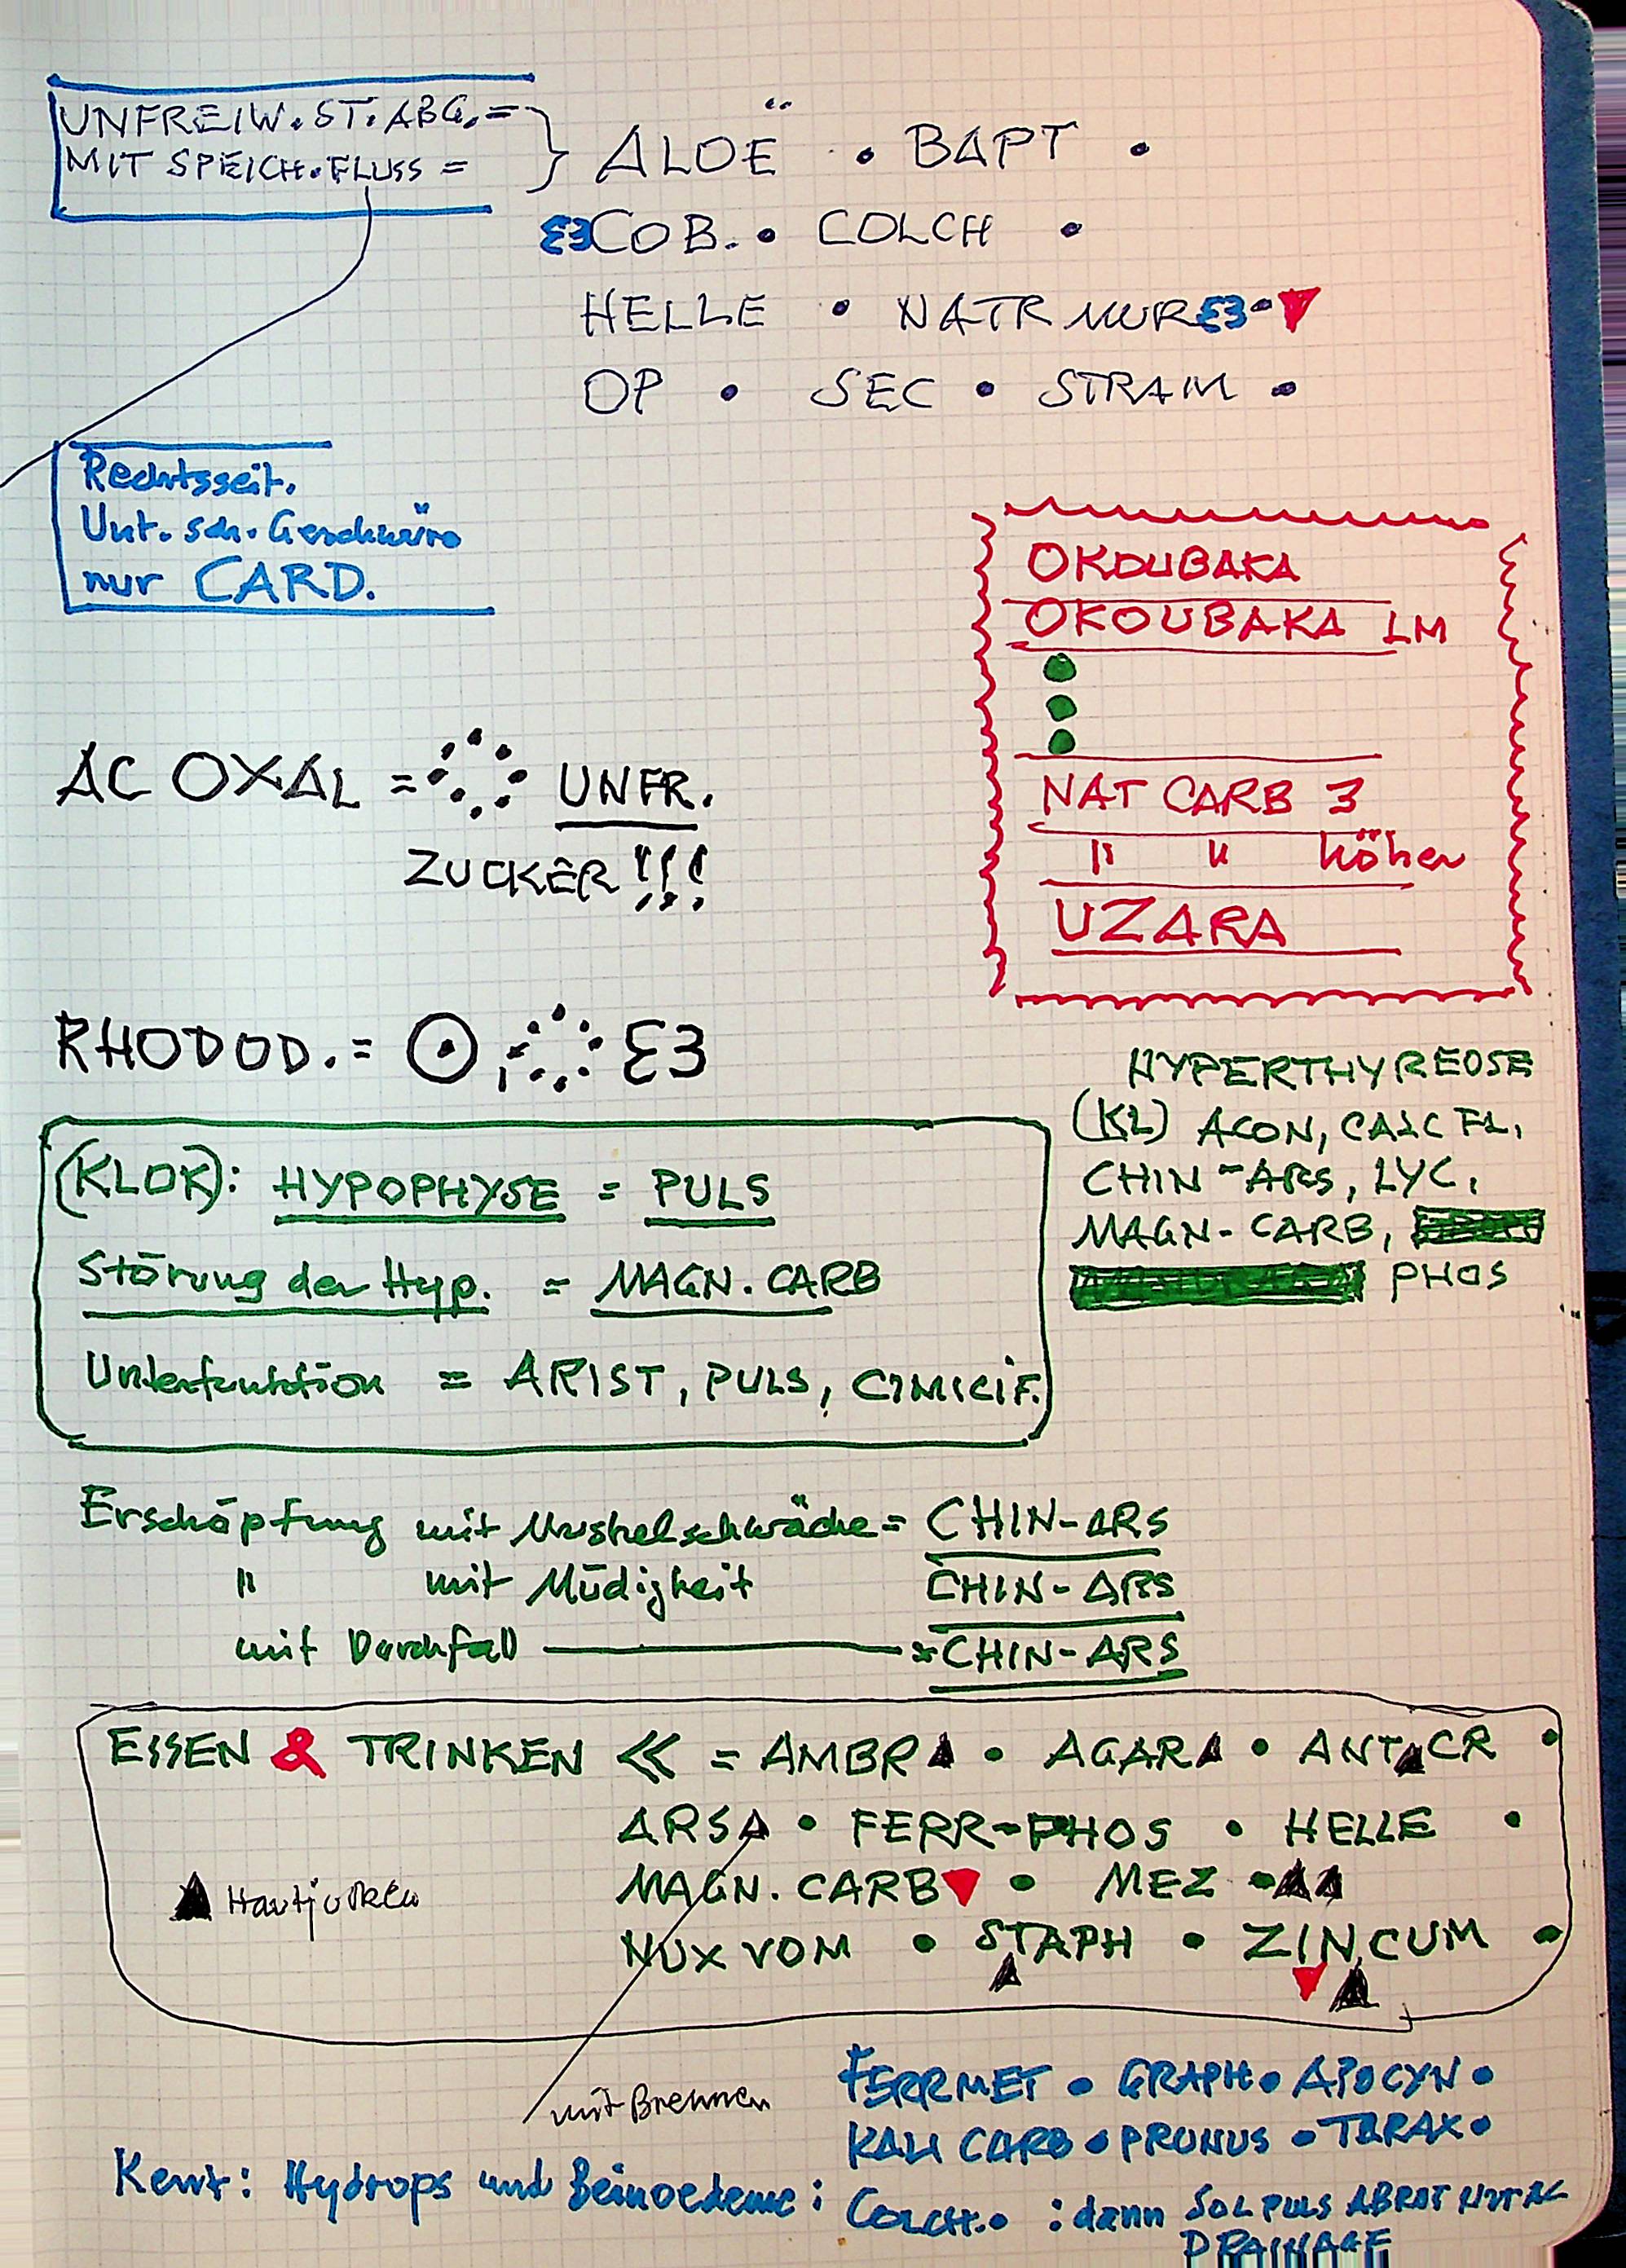 UNFREIW. ST. ABG. =
MIT SPEICH. FLUSS =
ALOE • BAPT •
COB. • COLCH •
HELLE • NATR MUR •
OP • SEC • STRAM •
Rechtsseit.
Unt. sch. Geschwüre
nur CARD.
OKOUBAKA
OKOUBAKA LM
NAT CARB 3
" " höher
UZARA
AC OXAL = UNFR.
ZUCKER!!!
RHODOD. =
HYPERTHYREOSE
(KL) ACON, CALC FL,
CHIN-ARS, LYC,
MAGN-CARB,
PHOS
(KLOK): HYPOPHYSE = PULS
Störung der Hyp. = MAGN. CARB
Unterfunktion = ARIST, PULS, CIMICIF.
Erschöpfung mit Muskelschwäche = CHIN-ARS
" mit Müdigkeit CHIN-ARS
mit Durchfall CHIN-ARS
ESSEN & TRINKEN << = AMBR • AGAR • ANT CR •
ARS • FERR-PHOS • HELLE •
MAGN. CARB • MEZ •
Hautjucken
NUX VOM • STAPH • ZINCUM •
mit Brennen
FERRMET • GRAPH • APOCYN •
KALI CARB • PRUNUS • TARAX •
Kent: Hydrops und Beinoedeme:
COLCH. • : dann SOL PULS ABROT
DRAINAGE